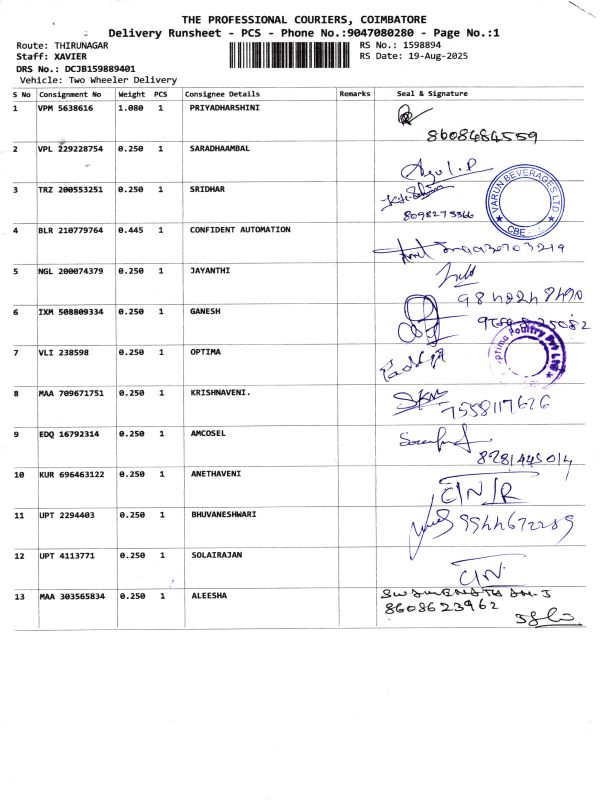 THE PROFESSIONAL COURIERS, COIMBATORE
Delivery Runsheet - PCS - Phone No.:9047080280 - Page No.:1
Route: THIRUNAGAR
RS No.: 1598894
Staff: XAVIER
RS Date: 19-Aug-2025
DRS No.: DCJB159889401
Vehicle: Two Wheeler Delivery
S No Consignment No Weight PCS Consignee Details Remarks Seal & Signature
1 VPM 5638616 1.080 1 PRIYADHARSHINI
8608484559
2 VPL 229228754 0.250 1 SARADHAAMBAL
3 TRZ 200553251 0.250 1 SRIDHAR
8098273366
VARUN BEVERAGES LTD
CBE
4 BLR 210779764 0.445 1 CONFIDENT AUTOMATION
5 NGL 200074379 0.250 1 JAYANTHI
6 IXM 508809334 0.250 1 GANESH
7 VLI 238598 0.250 1 OPTIMA
Optima Poultry Pvt Ltd
8 MAA 709671751 0.250 1 KRISHNAVENI.
7558117626
9 EDQ 16792314 0.250 1 AMCOSEL
8281445014
10 KUR 696463122 0.250 1 ANETHAVENI
11 UPT 2294403 0.250 1 BHUVANESHWARI
9944672289
12 UPT 4113771 0.250 1 SOLAIRAJAN
13 MAA 303565834 0.250 1 ALEESHA
8608623962